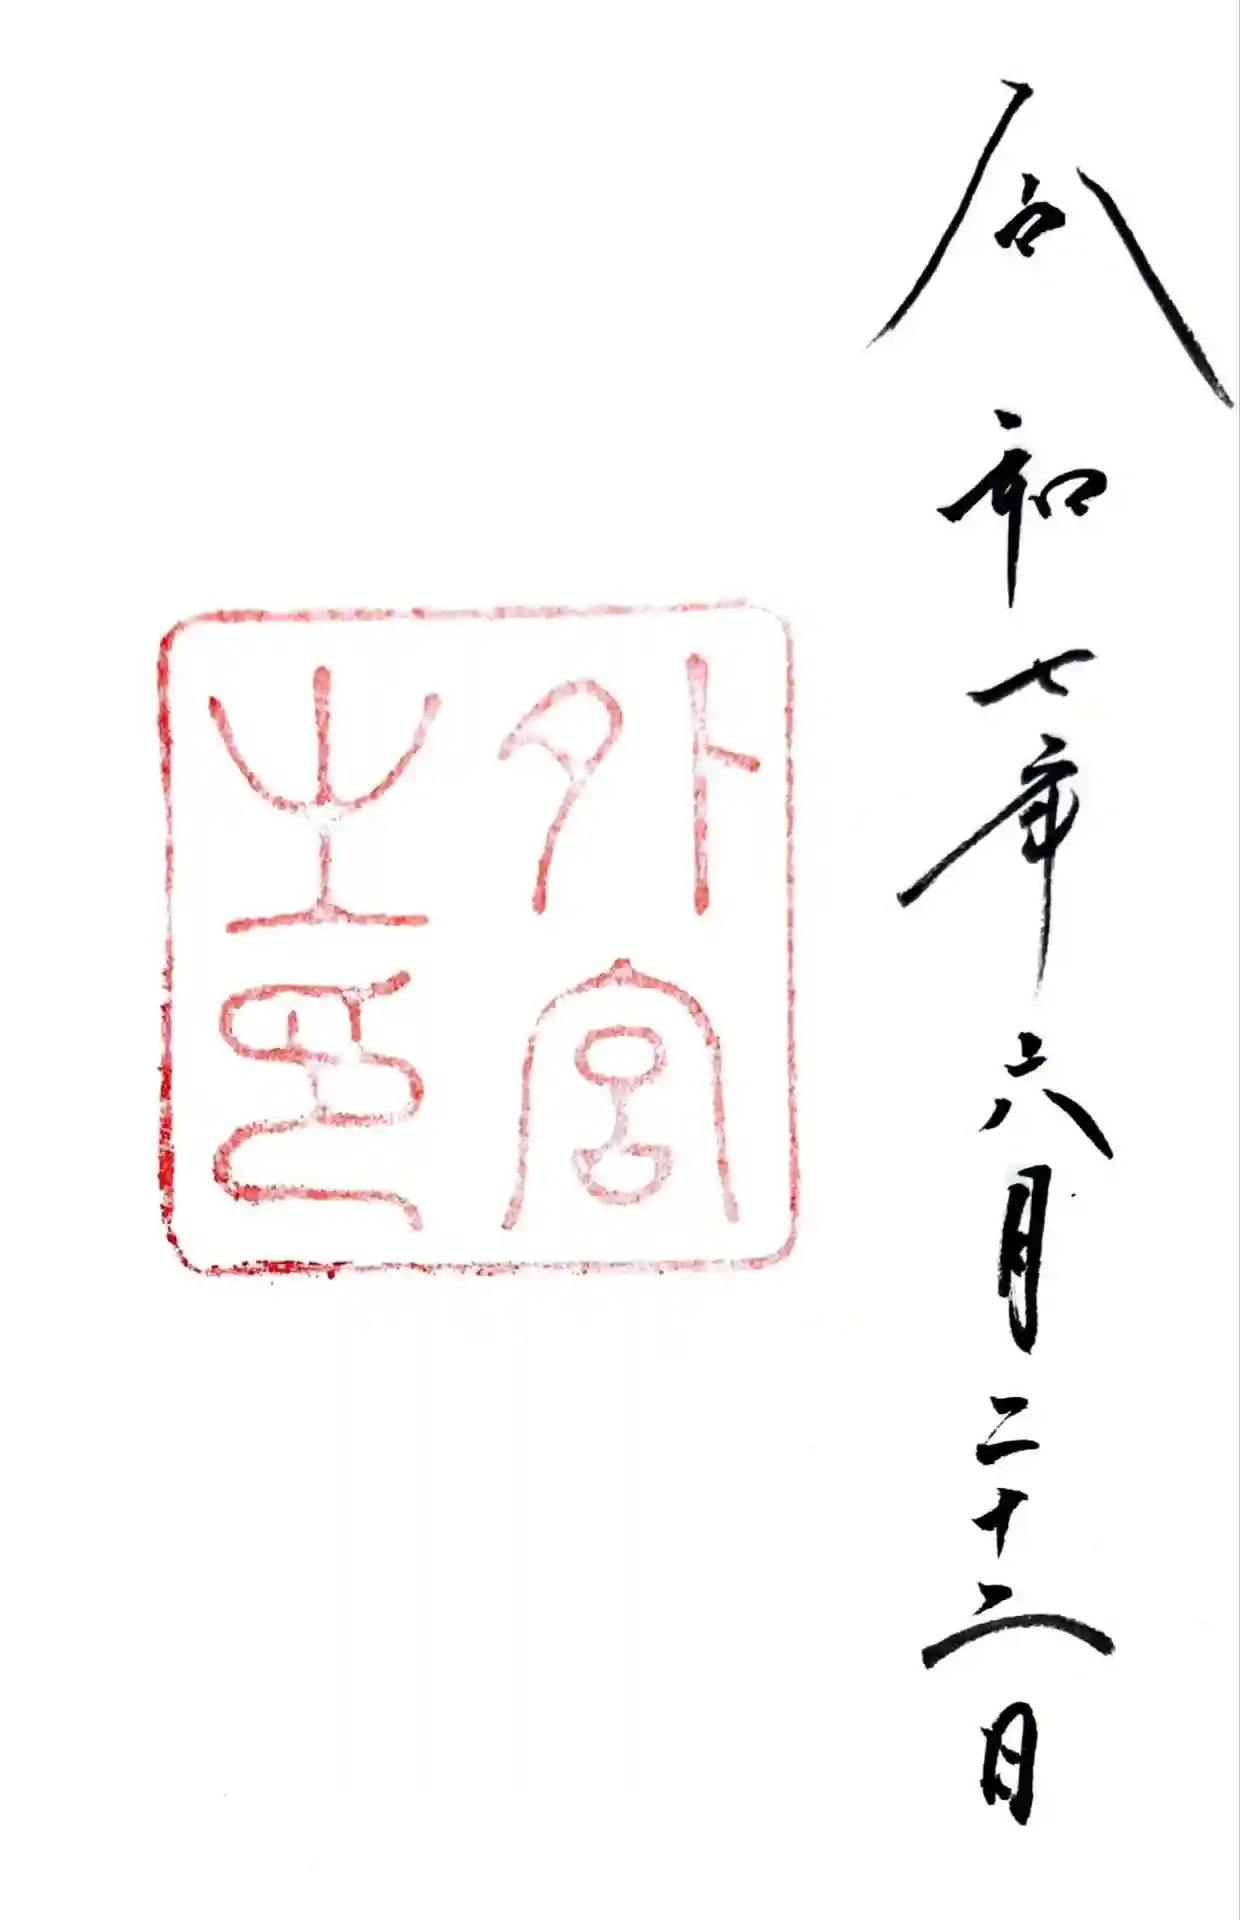 令和七年六月二十二日
外宮
之印